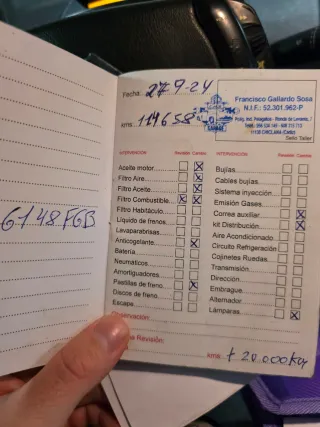 6148FGB
Fecha: 27-9-24
kms: 114658
Francisco Gallardo Sosa
N.I.F.: 52.301.962-P
Sello Taller
INTERVENCIÓN Revisión Cambio
Aceite motor
Filtro Aire
Filtro Aceite
Filtro Combustible
Filtro Habitáculo
Líquido de frenos
Lavaparabrisas
Anticogelante
Batería
Neumaticos
Amortiguadores
Pastillas de freno
Discos de freno
Escape
INTERVENCIÓN Revisión Cambio
Bujías
Cables bujías
Sistema inyección
Emisión Gases
Correa auxiliar
kit Distribución
Aire Acondicionado
Circuito Refrigeración
Cojinetes Ruedas
Transmisión
Dirección
Embrague
Alternador
Lámparas
Observación
Revisión:
kms + 20.000km